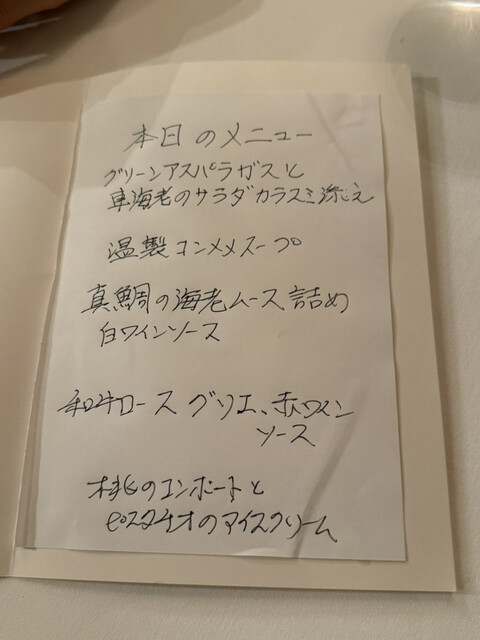 本日のメニュー
グリーンアスパラガスと
車海老のサラダカラスミ添え
温製コンソメスープ
真鯛の海老ムース詰め
白ワインソース
和牛ロース グリエ、赤ワイン
ソース
桃のコンポートと
ピスタチオのアイスクリーム